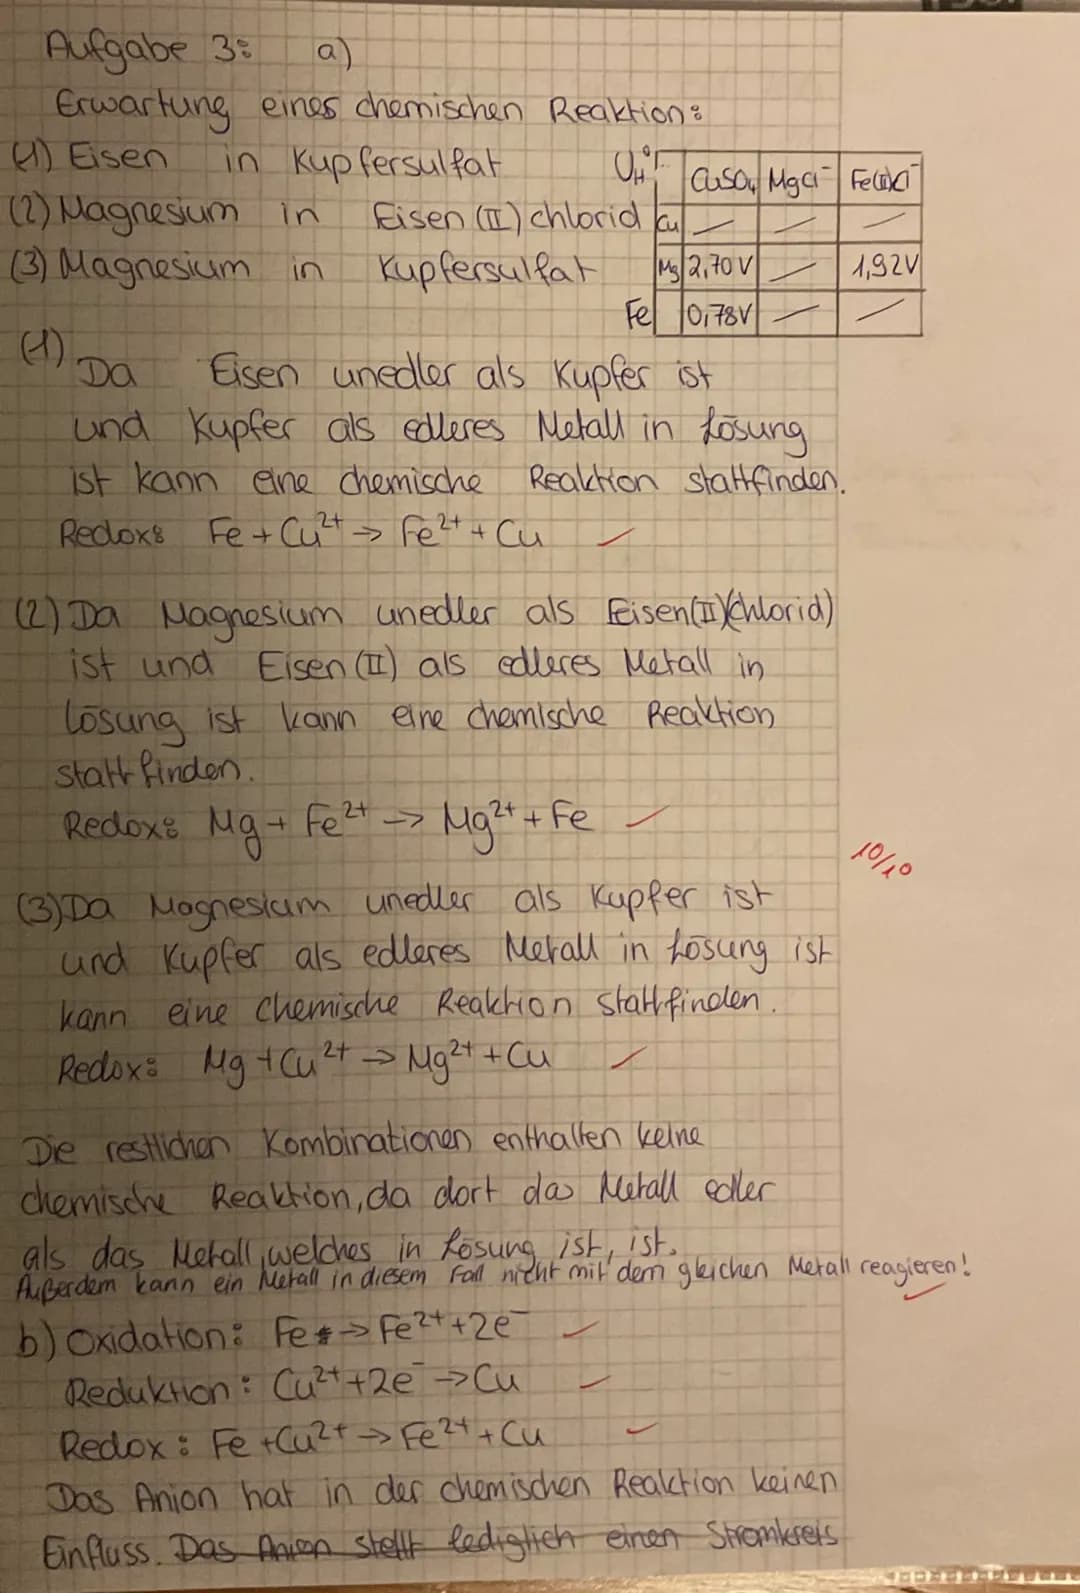 Aufgabe 3: a)
Erwartung eines chemischen Reaktion:
(1) Eisen in Kupfersulfat
(2) Magnesium in Eisen (II) chlorid
(3) Magnesium in Kupfersulfat
CuSO₄ MgCl⁻ Fe(II)Cl⁻
Cu — — —
Mg 2,70 V — 1,92V
Fe 0,78V — —
(1) Da Eisen unedler als Kupfer ist
und Kupfer als edleres Metall in Lösung
ist kann eine chemische Reaktion stattfinden.
Redox: Fe + Cu²⁺ → Fe²⁺ + Cu
(2) Da Magnesium unedler als Eisen(II)(chlorid)
ist und Eisen (II) als edleres Metall in
Lösung ist kann eine chemische Reaktion
stattfinden.
Redox: Mg + Fe²⁺ → Mg²⁺ + Fe
10/10
(3) Da Magnesium unedler als Kupfer ist
und Kupfer als edleres Metall in Lösung ist
kann eine chemische Reaktion stattfinden.
Redox: Mg + Cu²⁺ → Mg²⁺ + Cu
Die restlichen Kombinationen enthalten keine
chemische Reaktion, da dort das Metall edler
als das Metall, welches in Lösung ist, ist.
Außerdem kann ein Metall in diesem Fall nicht mit dem gleichen Metall reagieren!
b) Oxidation: Fe → Fe²⁺ + 2e⁻
Reduktion: Cu²⁺ + 2e⁻ → Cu
Redox: Fe + Cu²⁺ → Fe²⁺ + Cu
Das Anion hat in der chemischen Reaktion keinen
Einfluss. Das Anion stellt lediglich einen Stromkreis